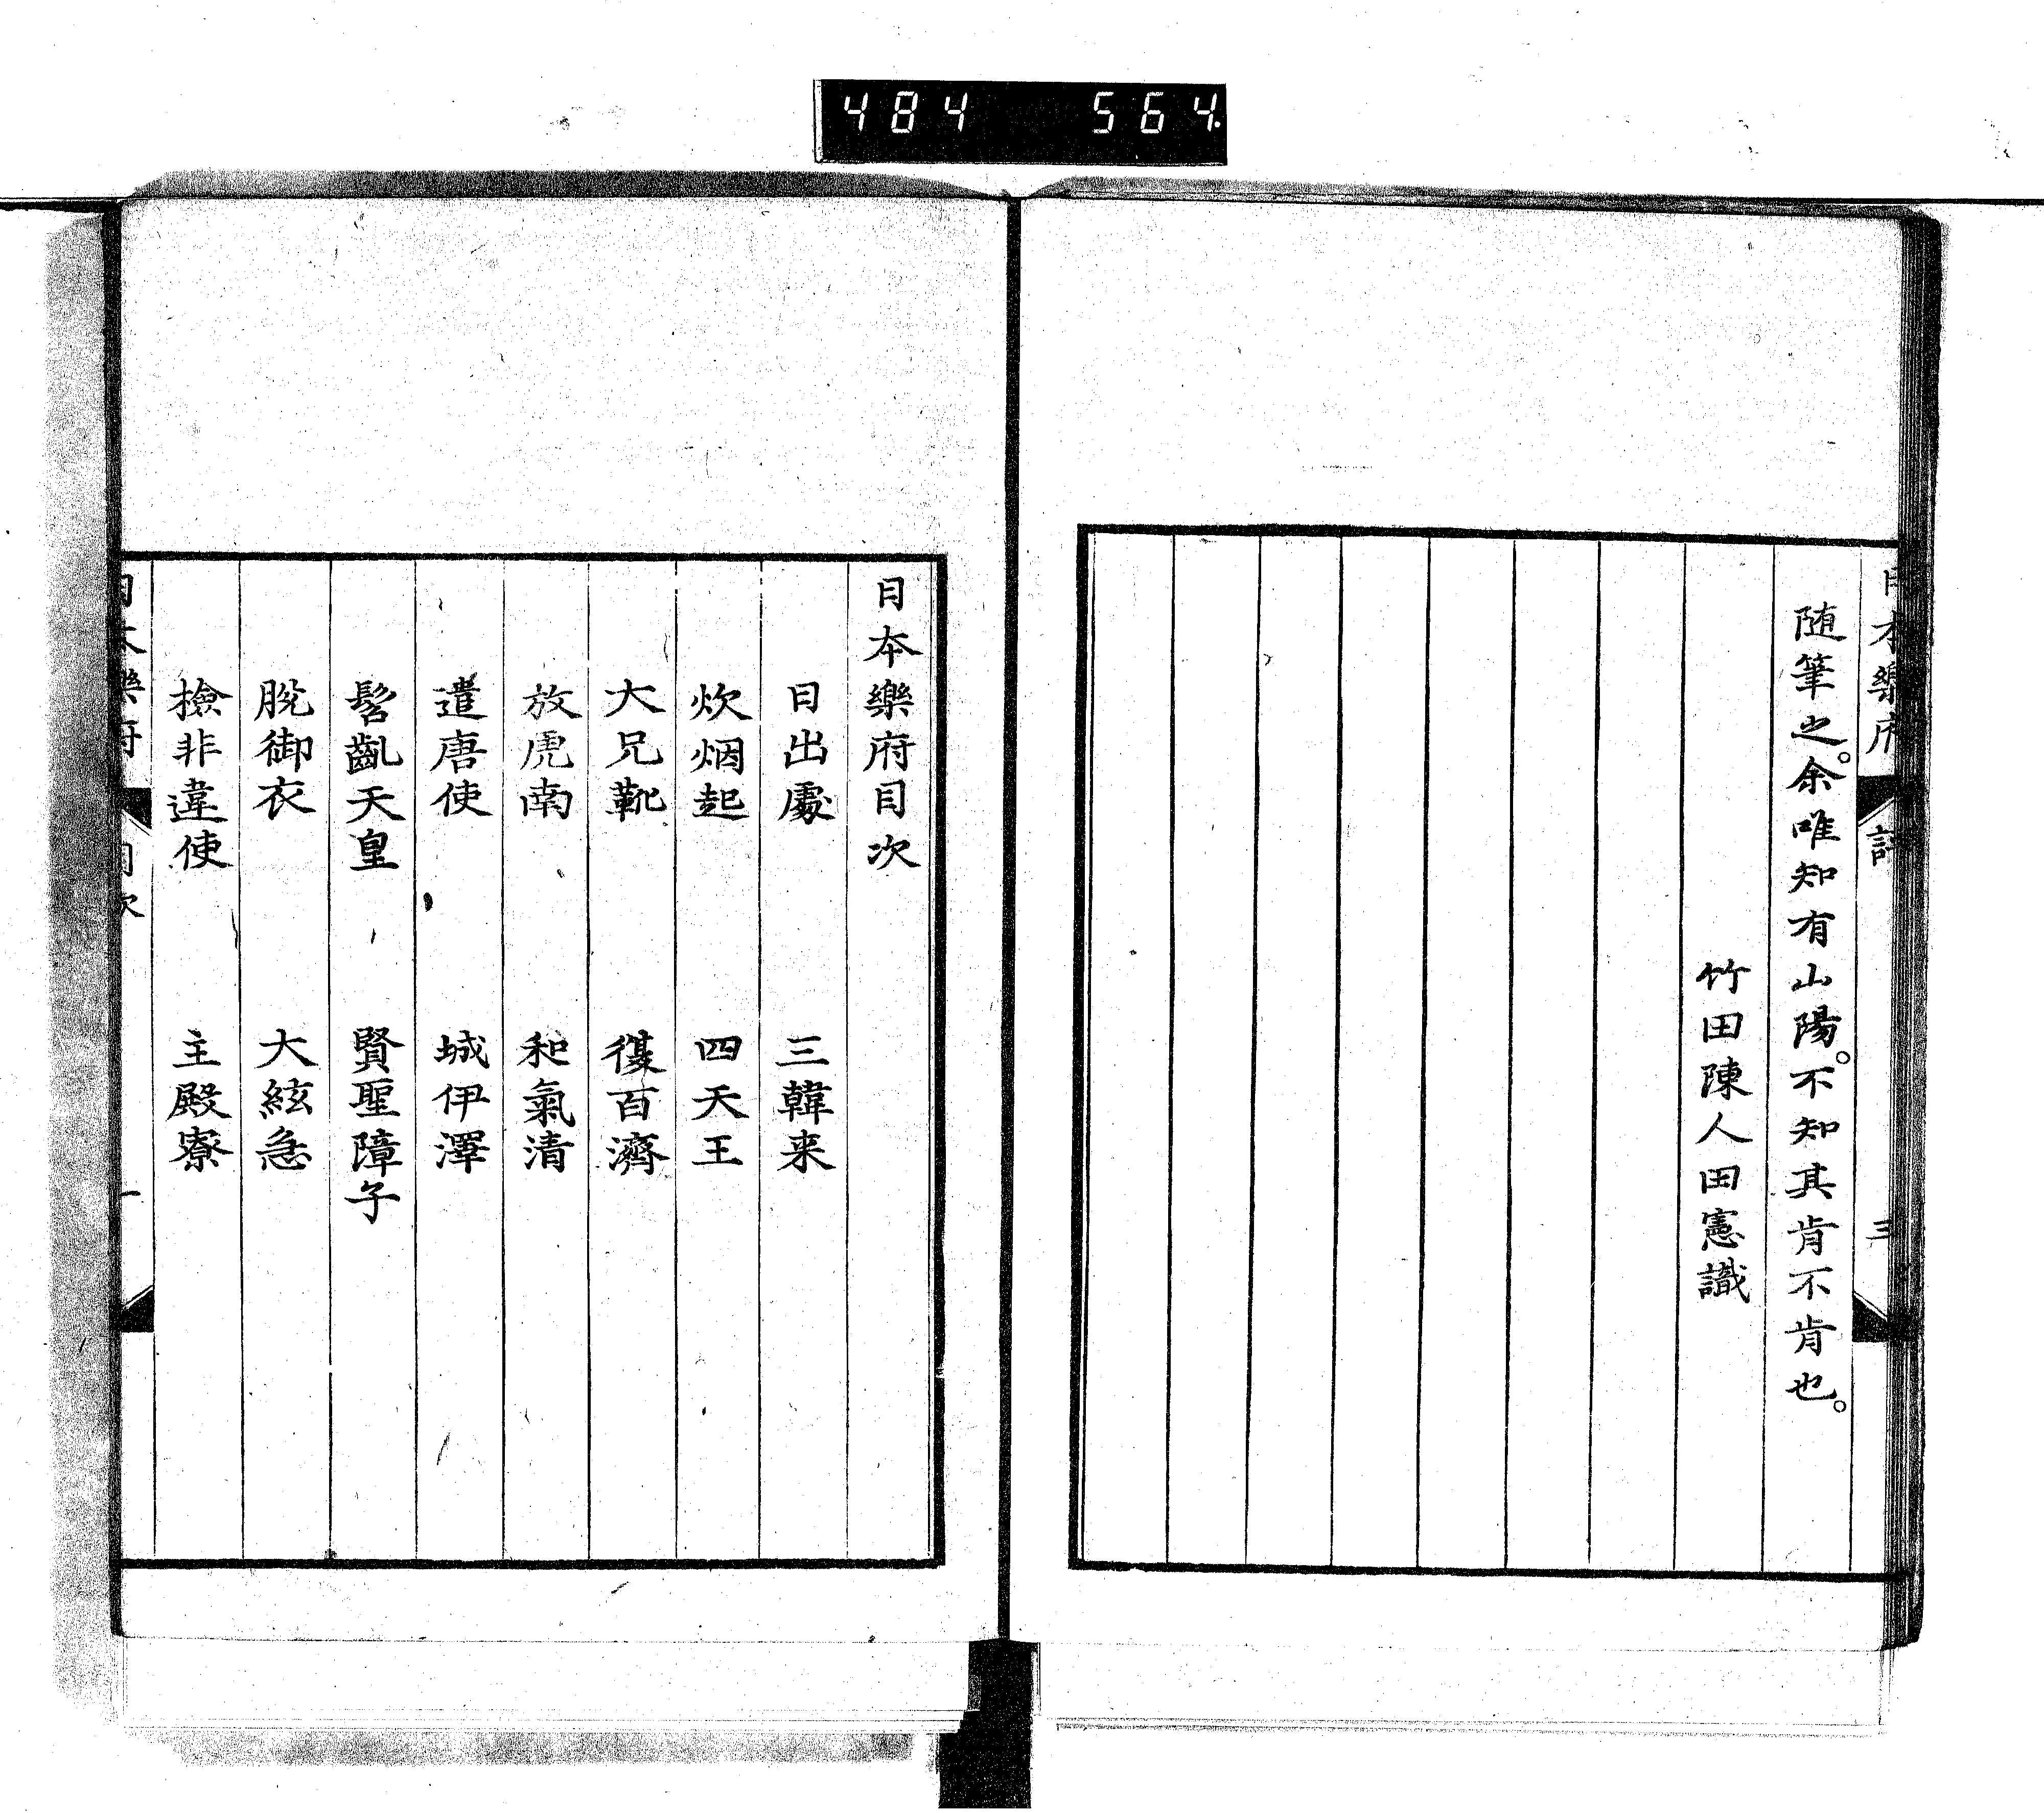 484 564
日本樂府
評
三
随筆之。余唯知有山陽。不知其肯不肯也。
竹田陳人田憲識
日本樂府目次
日出處 三韓来
炊烟起 四天王
大兄靴 復百濟
放虎南 和氣清
遣唐使 城伊澤
髫齓天皇 賢聖障子
脫御衣 大絃急
撿非違使 主殿寮
日本樂府
目次
一